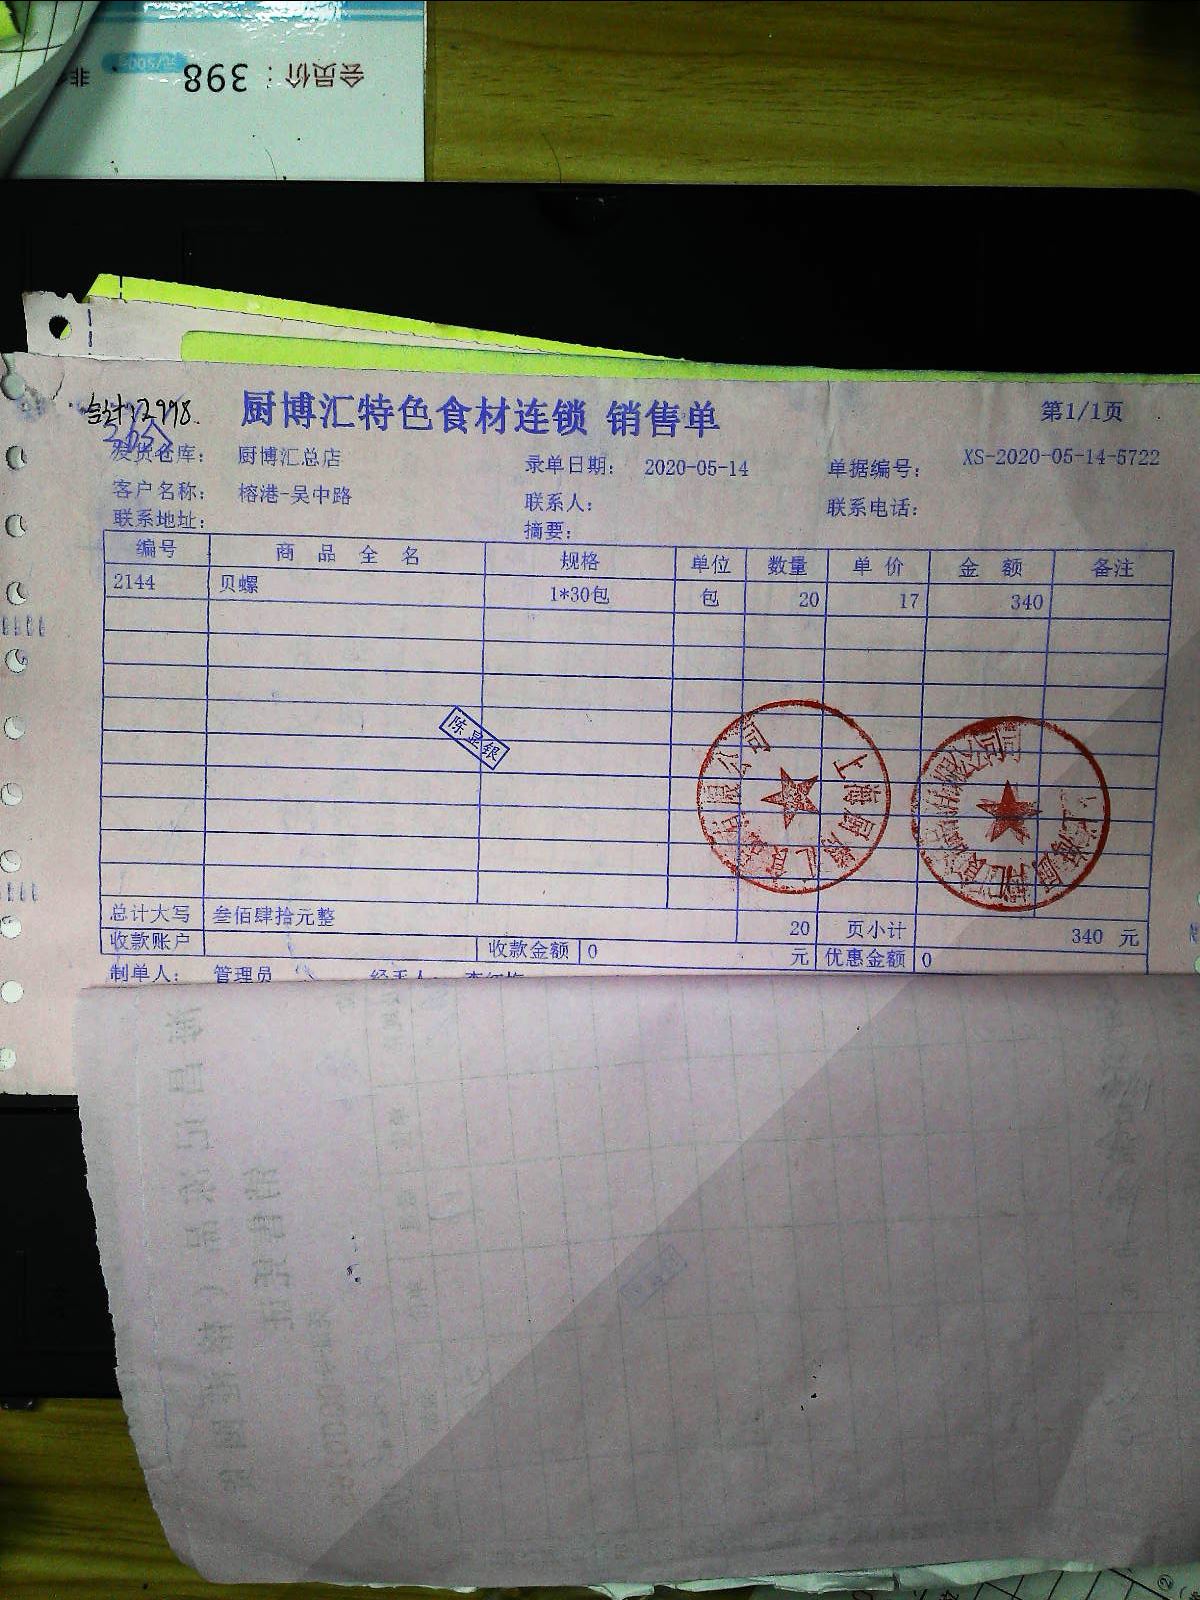 会员价：398
元/500g
非
合计：13998.
厨博汇特色食材连锁 销售单
第1/1页
发货仓库： 厨博汇总店
录单日期： 2020-05-14
单据编号： XS-2020-05-14-5722
客户名称： 榕港-吴中路
联系人：
联系电话：
联系地址：
摘要：
编号 商品全名 规格 单位 数量 单价 金额 备注
2144 贝螺 1*30包 包 20 17 340
陈显银
总计大写 叁佰肆拾元整 20 页小计 340 元
收款账户 收款金额 0 元 优惠金额 0
制单人： 管理员 经手人：